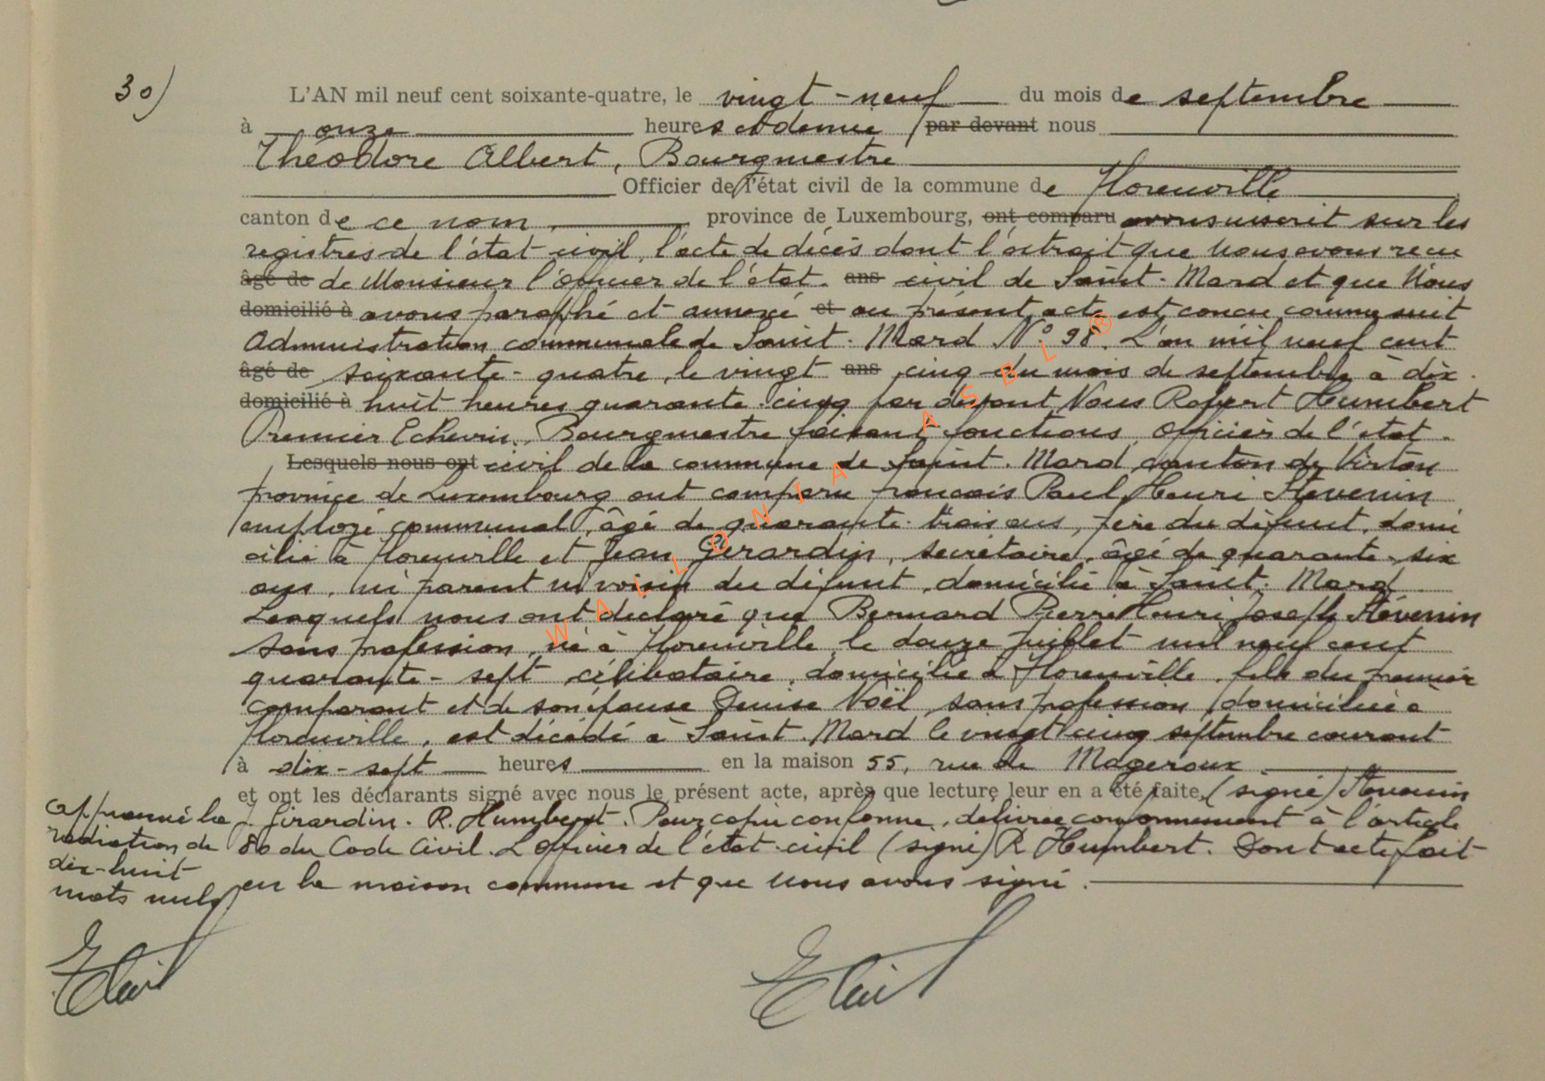 30)
L'AN mil neuf cent soixante-quatre, le vingt-neuf du mois de septembre
à onze heures et demie par devant nous
Théodore Albert, Bourgmestre
Officier de l'état civil de la commune de Florenville
canton de ce nom, province de Luxembourg, ont comparu avons inscrit sur les
registres de l'état-civil, l'acte de décès dont l'extrait que Nous avons reçu
âgé de de Monsieur l'Officier de l'état. ans civil de Saint-Mard et que Nous
domicilié à avons paraphé et annexé et au présent acte est conçu comme suit
Administration communale de Saint-Mard N° 98. L'an mil neuf cent
âgé de soixante-quatre, le vingt ans cinq du mois de septembre à dix.
domicilié à huit heures quarante-cinq par devant Nous Robert Humbert
Premier Echevin, Bourgmestre faisant fonctions, Officier de l'état.
Lesquels nous ont civil de la commune de Saint-Mard, canton de Virton
province de Luxembourg ont comparu françois Paul Henri Stévenin
employé communal, âgé de quarante-trois ans, père du défunt, domi
cilié à Florenville et Jean Girardin, secrétaire, âgé de quarante-six
ans, ni parent ni voisin du défunt, domicilié à Saint-Mard
Lesquels nous ont déclaré que Bernard Pierre Henri Joseph Stévenin
sans profession, né à Florenville, le douze juillet mil neuf cent
quarante-sept, célibataire, domicilié à Florenville, fils du premier
comparant et de son épouse Denise Noël, sans profession, domiciliée à
Florenville, est décédé à Saint-Mard le vingt cinq septembre courant
à dix-sept heures en la maison 55, rue de Mageroux.
et ont les déclarants signé avec nous le présent acte, après que lecture leur en a été faite, (signé) Stévenin
J. Girardin. R. Humbert. Pour copie conforme, délivrée conformément à l'article
80 du Code Civil. L'Officier de l'état-civil (signé) R. Humbert. Dont acte fait
en la maison commune et que Nous avons signé.
Approuvé la
radiation de
dix-huit
mots nuls
WALLONIA ASBL®